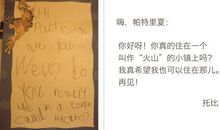 Hi
Patricia
are you
Well? do
you really
live in a town
called
嗨，帕特里夏：
你好呀！你真的住在一个
叫作“火山”的小镇上吗？
我真希望我也可以住在那儿。
再见！
托比